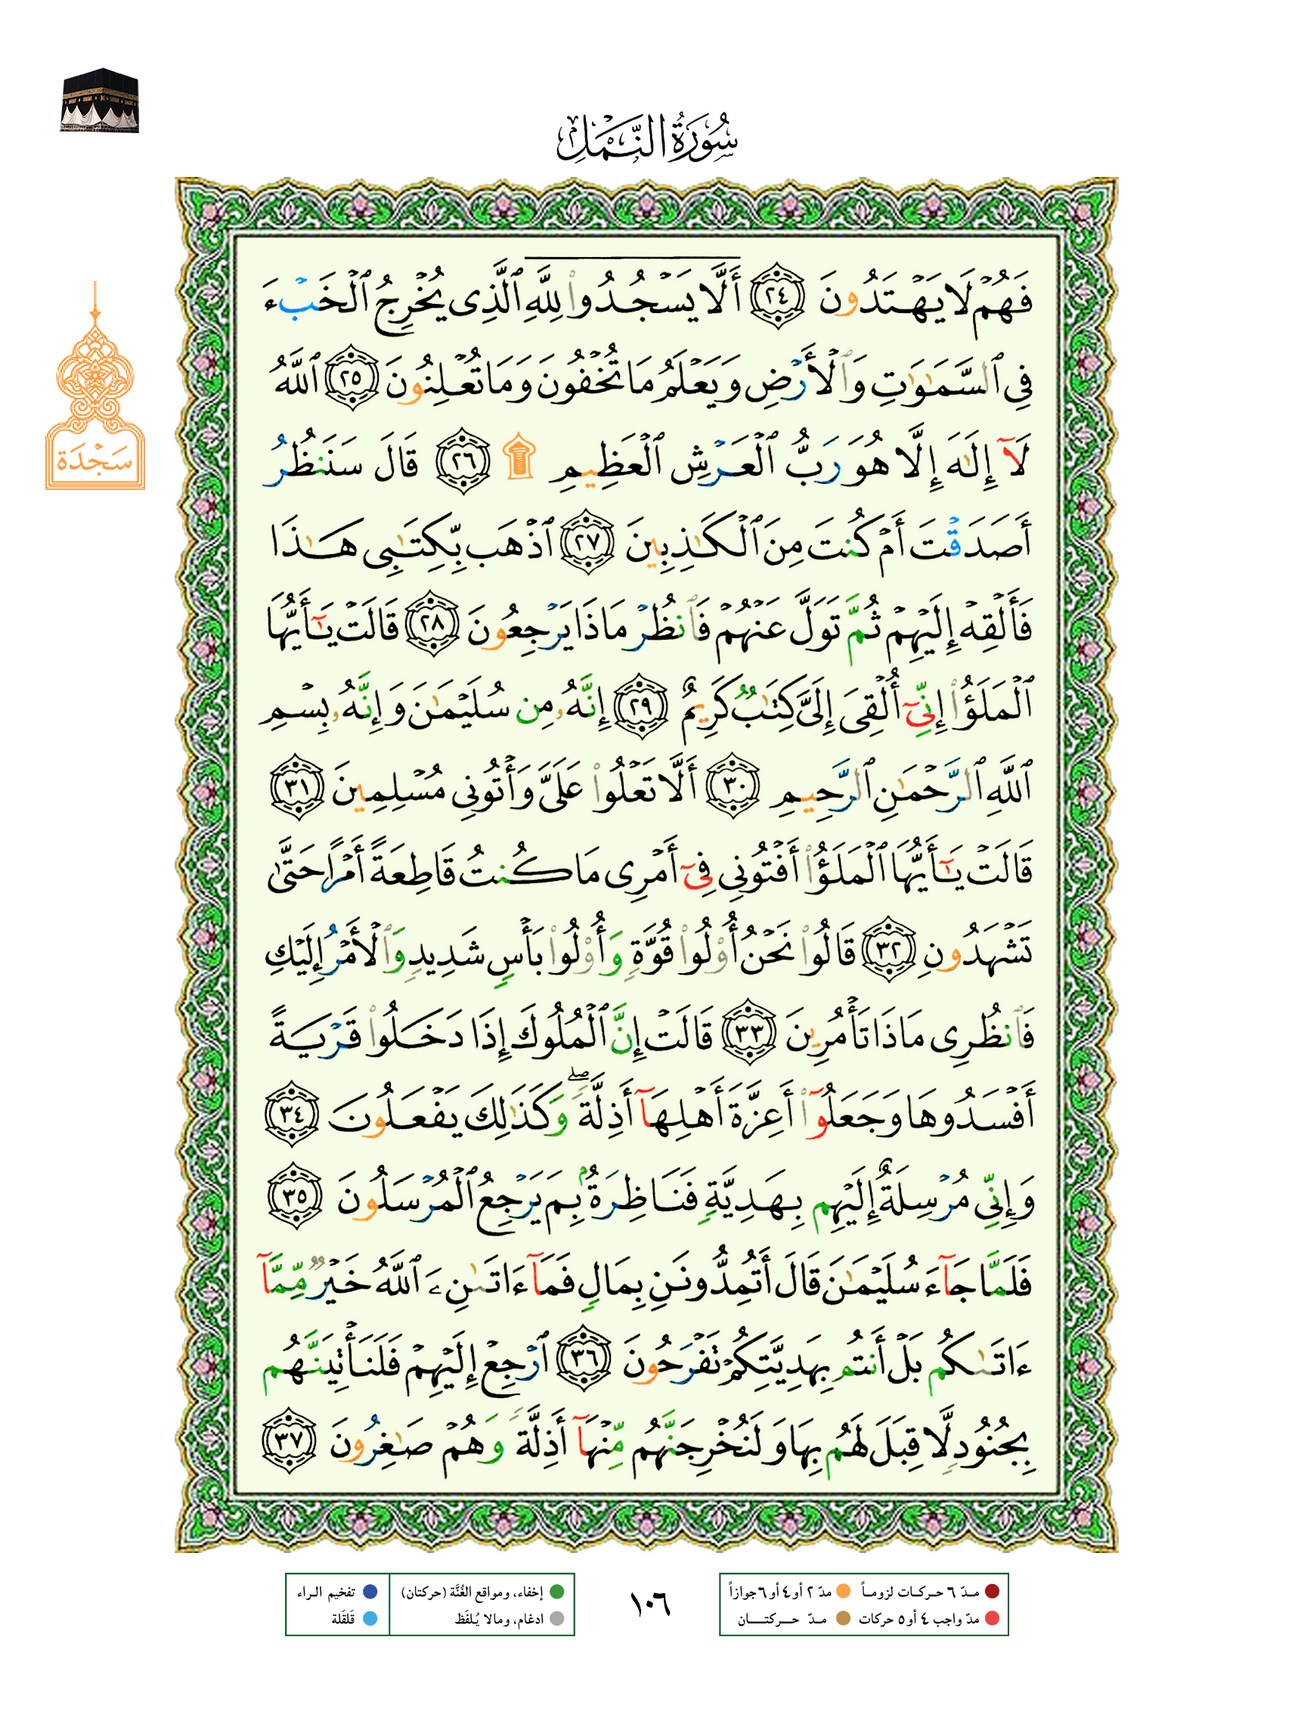 سُورَةُ النَّمْلِ
فَهُمْ لَا يَهْتَدُونَ ٢٤ أَلَّا يَسْجُدُوا۟ لِلَّهِ ٱلَّذِى يُخْرِجُ ٱلْخَبْءَ
فِى ٱلسَّمَـٰوَٰتِ وَٱلْأَرْضِ وَيَعْلَمُ مَا تُخْفُونَ وَمَا تُعْلِنُونَ ٢٥ ٱللَّهُ
لَآ إِلَـٰهَ إِلَّا هُوَ رَبُّ ٱلْعَرْشِ ٱلْعَظِيمِ ۩ ٢٦ قَالَ سَنَنظُرُ
أَصَدَقْتَ أَمْ كُنتَ مِنَ ٱلْكَـٰذِبِينَ ٢٧ ٱذْهَب بِّكِتَـٰبِى هَـٰذَا
فَأَلْقِهْ إِلَيْهِمْ ثُمَّ تَوَلَّ عَنْهُمْ فَٱنظُرْ مَاذَا يَرْجِعُونَ ٢٨ قَالَتْ يَـٰٓأَيُّهَا
ٱلْمَلَؤُا۟ إِنِّىٓ أُلْقِىَ إِلَىَّ كِتَـٰبٌ كَرِيمٌ ٢٩ إِنَّهُۥ مِن سُلَيْمَـٰنَ وَإِنَّهُۥ بِسْمِ
ٱللَّهِ ٱلرَّحْمَـٰنِ ٱلرَّحِيمِ ٣٠ أَلَّا تَعْلُوا۟ عَلَىَّ وَأْتُونِى مُسْلِمِينَ ٣١
قَالَتْ يَـٰٓأَيُّهَا ٱلْمَلَؤُا۟ أَفْتُونِى فِىٓ أَمْرِى مَا كُنتُ قَاطِعَةً أَمْرًا حَتَّىٰ
تَشْهَدُونِ ٣٢ قَالُوا۟ نَحْنُ أُو۟لُوا۟ قُوَّةٍ وَأُو۟لُوا۟ بَأْسٍ شَدِيدٍ وَٱلْأَمْرُ إِلَيْكِ
فَٱنظُرِى مَاذَا تَأْمُرِينَ ٣٣ قَالَتْ إِنَّ ٱلْمُلُوكَ إِذَا دَخَلُوا۟ قَرْيَةً
أَفْسَدُوهَا وَجَعَلُوٓا۟ أَعِزَّةَ أَهْلِهَآ أَذِلَّةً ۖ وَكَذَٰلِكَ يَفْعَلُونَ ٣٤
وَإِنِّى مُرْسِلَةٌ إِلَيْهِم بِهَدِيَّةٍ فَنَاظِرَةٌۢ بِمَ يَرْجِعُ ٱلْمُرْسَلُونَ ٣٥
فَلَمَّا جَآءَ سُلَيْمَـٰنَ قَالَ أَتُمِدُّونَنِ بِمَالٍ فَمَآ ءَاتَىٰنِۦَ ٱللَّهُ خَيْرٌ مِّمَّآ
ءَاتَىٰكُم بَلْ أَنتُم بِهَدِيَّتِكُمْ تَفْرَحُونَ ٣٦ ٱرْجِعْ إِلَيْهِمْ فَلَنَأْتِيَنَّهُم
بِجُنُودٍ لَّا قِبَلَ لَهُم بِهَا وَلَنُخْرِجَنَّهُم مِّنْهَآ أَذِلَّةً وَهُمْ صَـٰغِرُونَ ٣٧
سَجْدَة
مدّ ٦ حركات لزوماً
مدّ ٢ أو ٤ أو ٦ جوازاً
مدّ واجب ٤ أو ٥ حركات
مدّ حركتان
١٠٦
إخفاء، ومواقع الغُنَّة (حركتان)
تفخيم الراء
ادغام، ومالا يُلفَظ
قَلقَلة